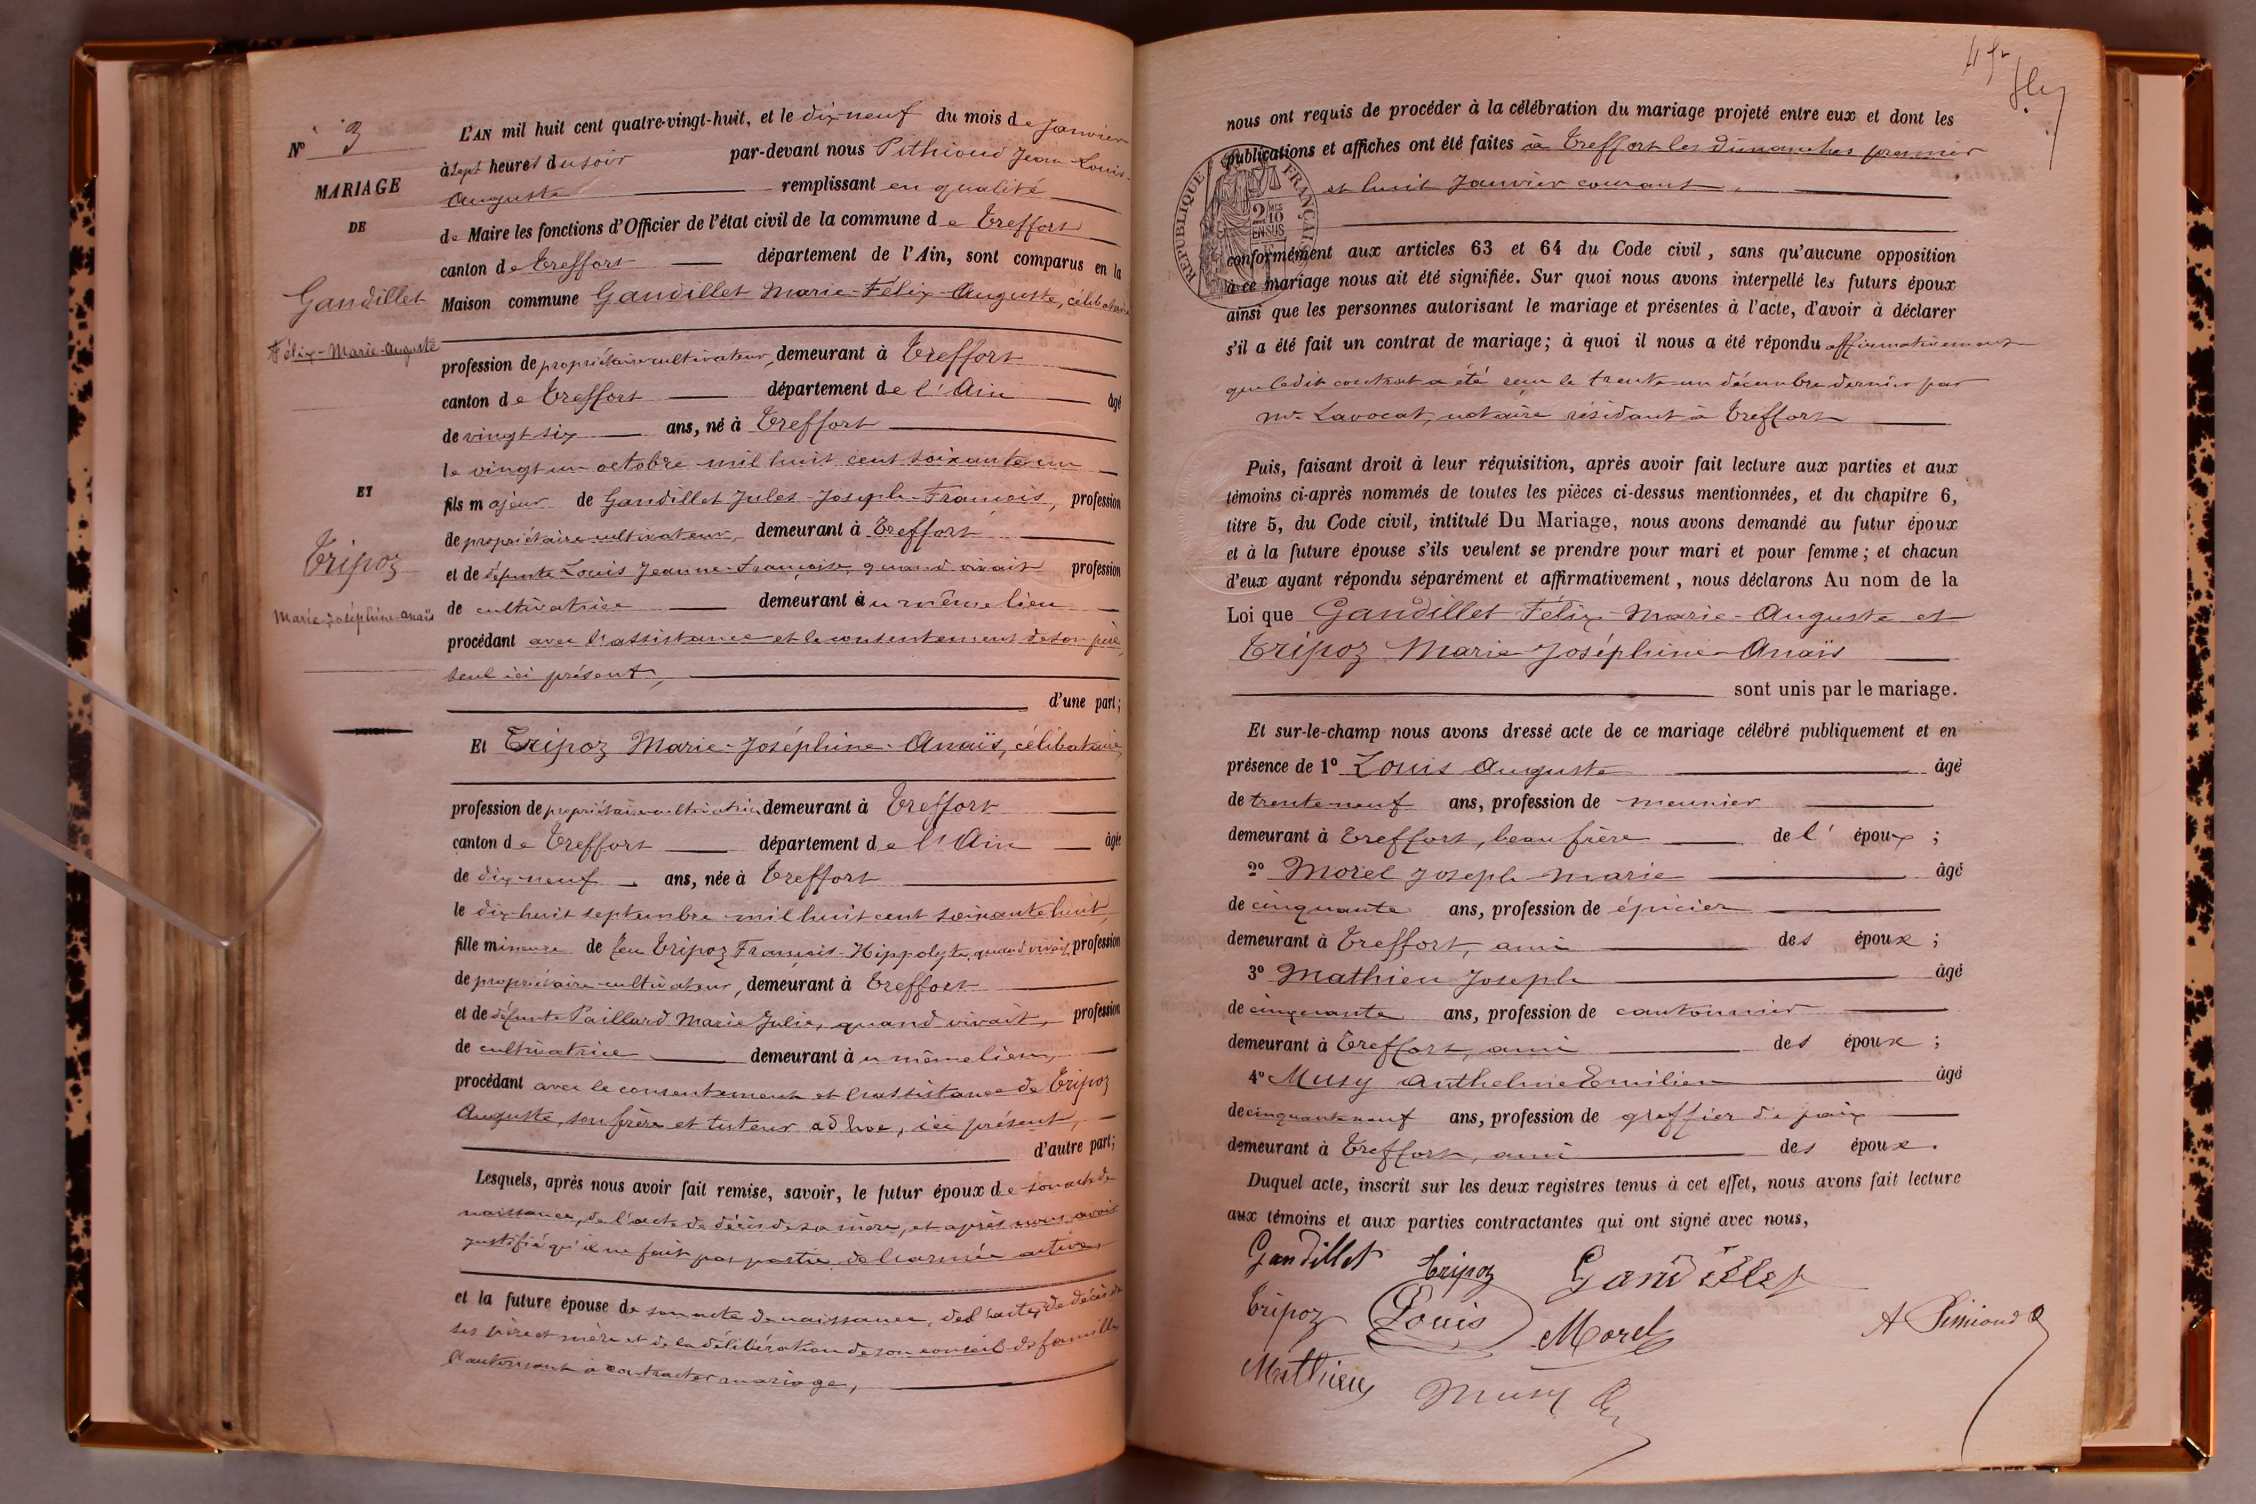 N° 3
MARIAGE
DE
Gandillet
Félix-Marie-Auguste
ET
Tripoz
Marie-Joséphine-Anaïs
L'AN mil huit cent quatre-vingt-huit, et le dix-neuf du mois de Janvier
à sept heures du soir par-devant nous Pithioud Jean-Louis-
Auguste remplissant en qualité
de Maire les fonctions d'Officier de l'état civil de la commune de Treffort
canton de Treffort département de l'Ain, sont comparus en la
Maison commune Gandillet Marie-Félix-Auguste, célibataire
profession de propriétaire cultivateur, demeurant à Treffort
canton de Treffort département de l'Ain âgé
de vingt six ans, né à Treffort
le vingt un octobre mil huit cent soixante un
fils majeur de Gandillet Jules-Joseph-François, profession
de propriétaire cultivateur, demeurant à Treffort
et de défunte Louis Jeanne-Françoise, quand vivait profession
de cultivatrice demeurant au même lieu
procédant avec l'assistance et le consentement de son père,
seul ici présent,
d'une part;
Et Tripoz Marie-Joséphine-Anaïs, célibataire,
profession de propriétaire cultivatrice demeurant à Treffort
canton de Treffort département de l'Ain âgée
de dix-neuf ans, née à Treffort
le dix-huit septembre mil huit cent soixante huit,
fille mineure de feu Tripoz François-Hippolyte, quand vivait, profession
de propriétaire cultivateur, demeurant à Treffort
et de défunte Paillard Marie Julie, quand vivait, profession
de cultivatrice demeurant au même lieu,
procédant avec le consentement et l'assistance de Tripoz
Auguste, son frère et tuteur ad hoc, ici présent,
d'autre part;
Lesquels, après nous avoir fait remise, savoir, le futur époux de son acte de
naissance, de l'acte de décès de sa mère, et après nous avoir
justifié qu'il ne fait pas partie de l'armée active,
et la future épouse de son acte de naissance, des actes de décès de
ses père et mère et de la délibération de son conseil de famille
l'autorisant à contracter mariage,
4 fr
nous ont requis de procéder à la célébration du mariage projeté entre eux et dont les
publications et affiches ont été faites à Treffort les dimanches premier
et huit Janvier courant,
RÉPUBLIQUE FRANÇAISE
2 MES 10
EN SUS
conformément aux articles 63 et 64 du Code civil, sans qu'aucune opposition
à ce mariage nous ait été signifiée. Sur quoi nous avons interpellé les futurs époux
ainsi que les personnes autorisant le mariage et présentes à l'acte, d'avoir à déclarer
s'il a été fait un contrat de mariage; à quoi il nous a été répondu affirmativement
que ledit contrat a été reçu le trente-un décembre dernier par
Me Lavocat, notaire résidant à Treffort
Puis, faisant droit à leur réquisition, après avoir fait lecture aux parties et aux
témoins ci-après nommés de toutes les pièces ci-dessus mentionnées, et du chapitre 6,
titre 5, du Code civil, intitulé Du Mariage, nous avons demandé au futur époux
et à la future épouse s'ils veulent se prendre pour mari et pour femme; et chacun
d'eux ayant répondu séparément et affirmativement, nous déclarons Au nom de la
Loi que Gandillet Félix-Marie-Auguste et
Tripoz Marie Joséphine-Anaïs
sont unis par le mariage.
Et sur-le-champ nous avons dressé acte de ce mariage célébré publiquement et en
présence de 1° Louis Auguste âgé
de trente-neuf ans, profession de meunier
demeurant à Treffort, beau frère de l'époux;
2° Morel Joseph-Marie âgé
de cinquante ans, profession de épicier
demeurant à Treffort, ami des époux;
3° Mathieu Joseph âgé
de cinquante ans, profession de cantonnier
demeurant à Treffort, ami des époux;
4° Musy Anthelme Emilien âgé
de cinquante neuf ans, profession de greffier de paix
demeurant à Treffort, ami des époux.
Duquel acte, inscrit sur les deux registres tenus à cet effet, nous avons fait lecture
aux témoins et aux parties contractantes qui ont signé avec nous,
Gandillet Tripoz Gandillet
Tripoz Louis Morel
Mathieu Musy